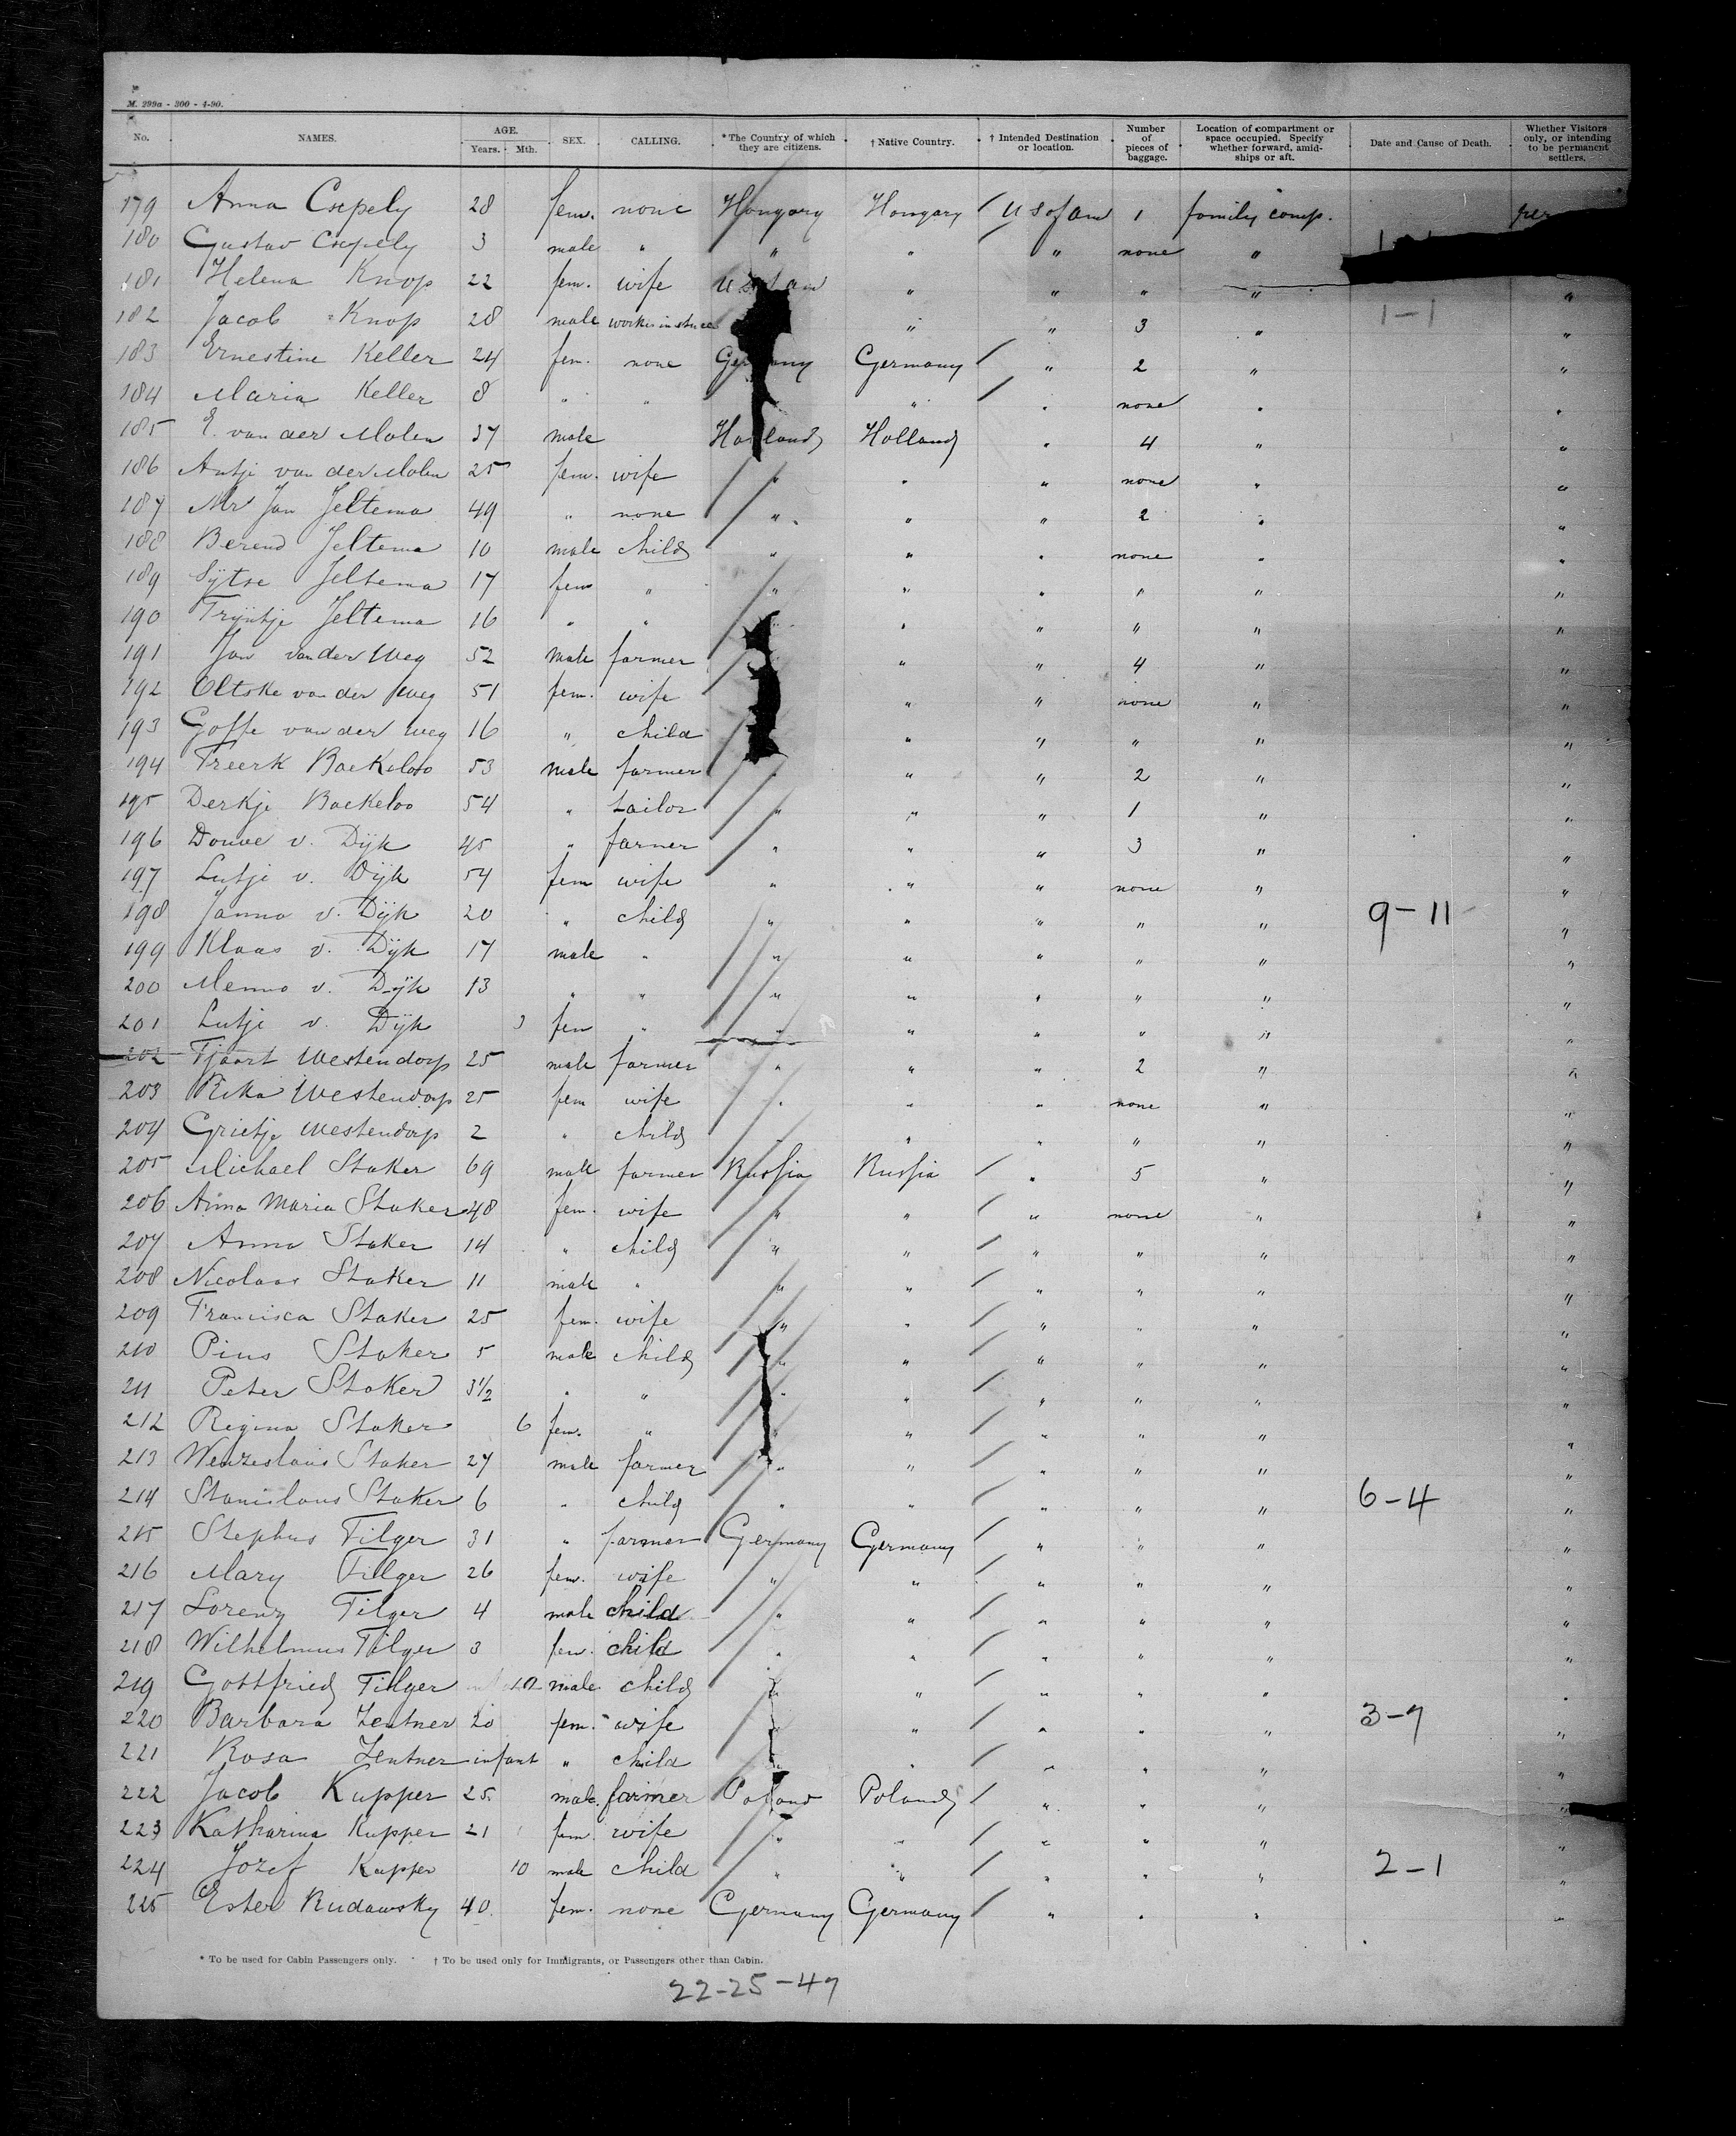 M. 299a - 300 - 4-90.
No. NAMES. AGE. Years. Mth. SEX. CALLING. *The Country of which they are citizens. †Native Country. †Intended Destination or location. Number of pieces of baggage. Location of compartment or space occupied. Specify whether forward, amidships or aft. Date and Cause of Death. Whether Visitors only, or intending to be permanent settlers.
179 Anna Csepely 28 fem. none Hongary Hongary U S of am 1 family comp.
180 Gustav Csepely 3 male " " " " none "
181 Helena Knop 22 fem. wife " " " " "
182 Jacob Knop 28 male " " 3 " 1-1 "
183 Ernestine Keller 24 fem. none Germany Germany " 2 " "
184 Maria Keller 8 " " " " none " "
185 E. van der Molen 37 male Holland Holland " 4 " "
186 Antje van der Molen 25 fem. wife " " " none " "
187 Mr Jan Jeltema 49 " none " " " 2 " "
188 Berend Jeltema 10 male child " " " none " "
189 Sijtse Jeltema 17 fem " " " " " " "
190 Trijntje Jeltema 16 " " " " " " " "
191 Jan van der Weg 52 male farmer " " 4 " "
192 Eltske van der Weg 51 fem. wife " " none " "
193 Goffe van der Weg 16 " child " " " " "
194 Freerk Boekeloo 53 male farmer " " " 2 " "
195 Derkje Boekeloo 54 " tailor " " " 1 " "
196 Douwe v. Dijk 45 " farmer " " " 3 " "
197 Lutje v. Dijk 54 fem wife " " " none " "
198 Janna v. Dijk 20 " child " " " " " 9-11 "
199 Klaas v. Dijk 17 male " " " " " " "
200 Menno v. Dijk 13 " " " " " " " "
201 Lutje v. Dijk 3 fem " " " " " " "
202 Tjaart Westendorp 25 male farmer " " " 2 " "
203 Rika Westendorp 25 fem wife " " " none " "
204 Grietje Westendorp 2 " child " " " " " "
205 Michael Staker 69 male farmer Russia Russia " 5 " "
206 Anna Maria Staker 48 fem. wife " " " none " "
207 Anna Staker 14 " child " " " " " "
208 Nicolaas Staker 11 male " " " " " " "
209 Francisca Staker 25 fem. wife " " " " " "
210 Pius Staker 5 male child " " " " " "
211 Peter Staker 3 1/2 " " " " " " " "
212 Regina Staker 6 fem. " " " " " " "
213 Wenzeslaus Staker 27 male farmer " " " " " "
214 Stanislaus Staker 6 " child " " " " " 6-4 "
215 Stephus Filger 31 " farmer Germany Germany " " " "
216 Mary Filger 26 fem. wife " " " " " "
217 Lorenz Filger 4 male child " " " " " "
218 Wilhelmus Filger 3 fem. child " " " " " "
219 Gottfried Filger 10 male child " " " " " "
220 Barbara Zentner 20 fem. wife " " " " " 3-7 "
221 Rosa Zentner infant " child " " " " " "
222 Jacob Kupper 25 male farmer Poland Poland " " " "
223 Katharina Kupper 21 fem. wife " " " " " "
224 Jozef Kupper 10 male child " " " " " 2-1 "
225 Ester Rudawsky 40 fem. none Germany Germany " " " "
* To be used for Cabin Passengers only. † To be used only for Immigrants, or Passengers other than Cabin.
22-25-47